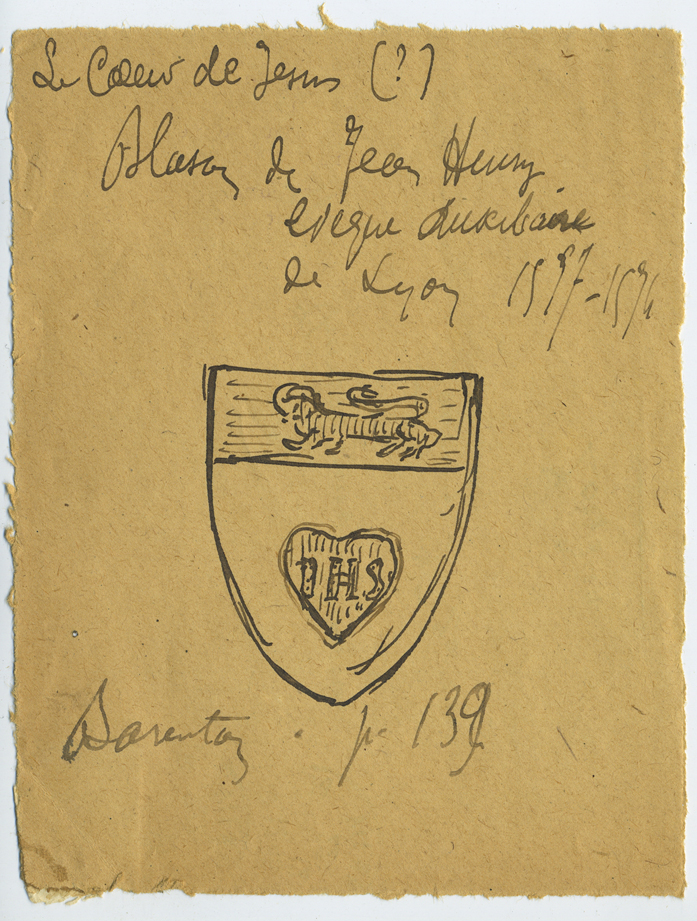 Le Coeur de Jesus (?)
Blason de Jean Henry
évêque Auxiliaire
de Lyon
IHS
Barenton . p. 139